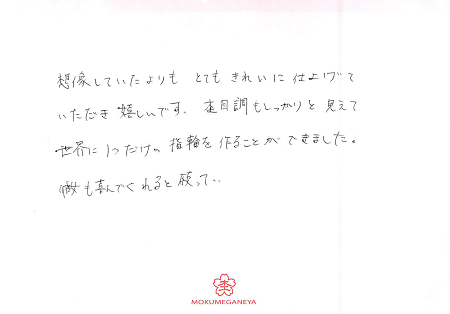 想像していたよりも とてもきれいに仕上げて
いただき嬉しいです. 杢目調もしっかりと見えて
世界に1つだけの指輪を作ることができました。
も喜んでくれると願って..
杢
MOKUMEGANEYA